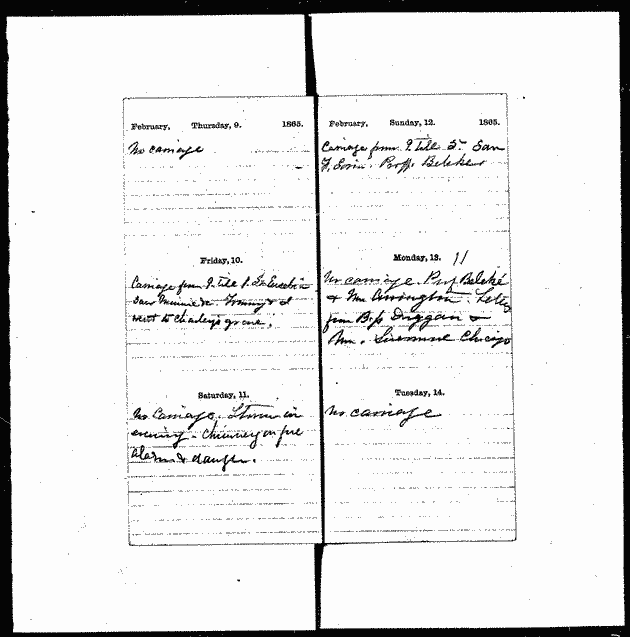 February, Thursday, 9. 1865.
No carriage
Friday, 10.
Carriage from 9. till 1. St Eusebia
saw Minnie &c. Tommy & I
went to Charley's grave.
Saturday, 11.
No Carriage. Storm in
evening - Chimney on fire
alarm & danger.
February, Sunday, 12. 1865.
Carriage from 9. till 5. San
Prof. Beleke
Monday, 13. 11
No carriage. Prof Beleké
& Mr Arrington. Letters
from Bp Duggan &
Chicago
Tuesday, 14.
No carriage